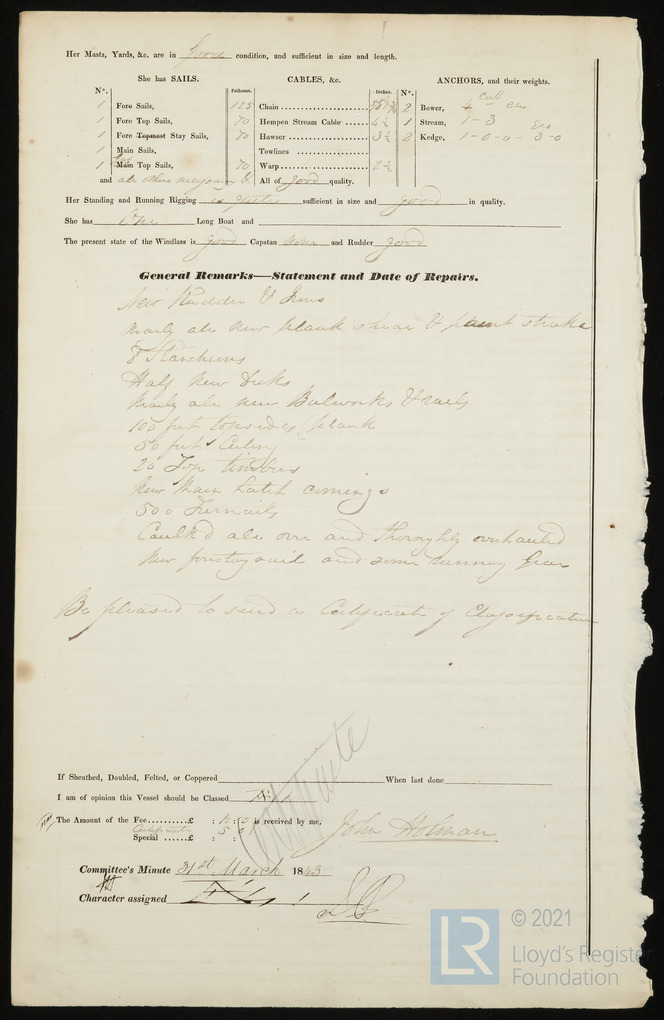 Her Masts, Yards, &c. are in Good condition, and sufficient in size and length.
She has SAILS. CABLES, &c. ANCHORS, and their weights.
N°. Fathoms. Inches. N°.
1 Fore Sails, 125 Chain 2 Bower, 4 cwt ea
1 Fore Top Sails, 70 Hempen Stream Cable 6 ½ 1 Stream, 1-3
1 Fore Topmast Stay Sails, 70 Hawser 3 ½ 2 Kedge, 1-0-0- 3-0
1 Main Sails, Towlines
1 Main Top Sails, 70 Warp 2 ½
and all others necessary & All of good quality.
Her Standing and Running Rigging is quite sufficient in size and good in quality.
She has One Long Boat and
The present state of the Windlass is good Capstan none and Rudder good
General Remarks—Statement and Date of Repairs.
New Rudder &
nearly all new plank shear & paint strake
8 Stanchions
Half New Deks
nearly all new Bulworks & rails
100 feet topsides plank
50 feet Ceiling
20 Top timbers
New Main hatch comings
500 Turnails
Caulkd all over and thoroughly overhauled
New sail and some running Gear
Be pleased to send a Certificate of Classification
If Sheathed, Doubled, Felted, or Coppered When last done
I am of opinion this Vessel should be Classed
The Amount of the Fee £ : 10 : 0 is received by me,
Certificate 5 0
Special £ : :
John Holman
Committee's Minute 31st March 1843
Character assigned
© 2021
LR
Lloyd's Register
Foundation